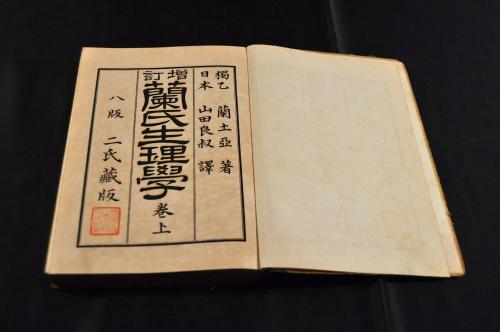 獨乙 蘭土亞 著
日本 山田良叔 譯
増訂
蘭氏生理學 卷上
八版 二氏藏版